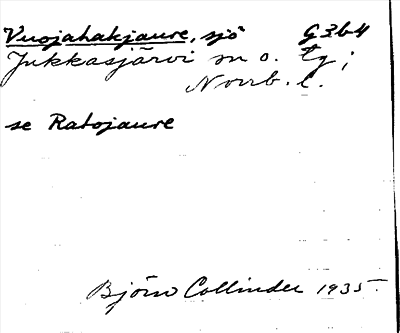 Vuojahakjaure, sjö G3b4
Jukkasjärvi sn o. tg;
Norrb. l.
se Ratojaure
Björn Collinder 1935.